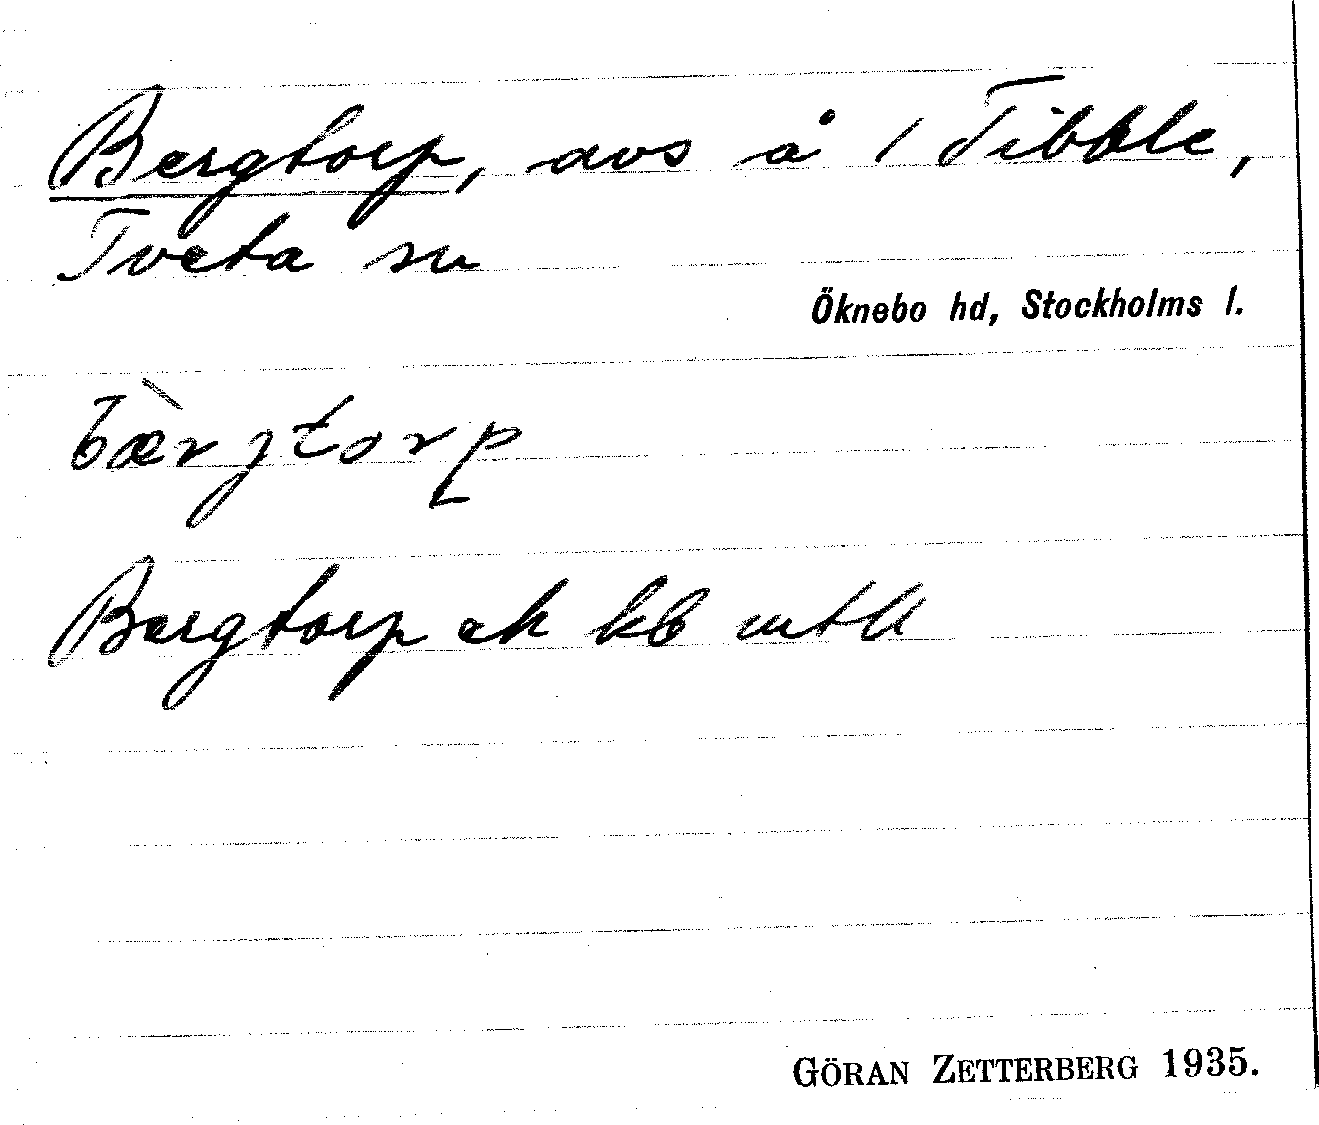 Bergtorp, avs å 1 Tibble,
Tveta sn
Öknebo hd, Stockholms l.
bæ̀rjtorp
Bergtorp ek kb mtl
GÖRAN ZETTERBERG 1935.